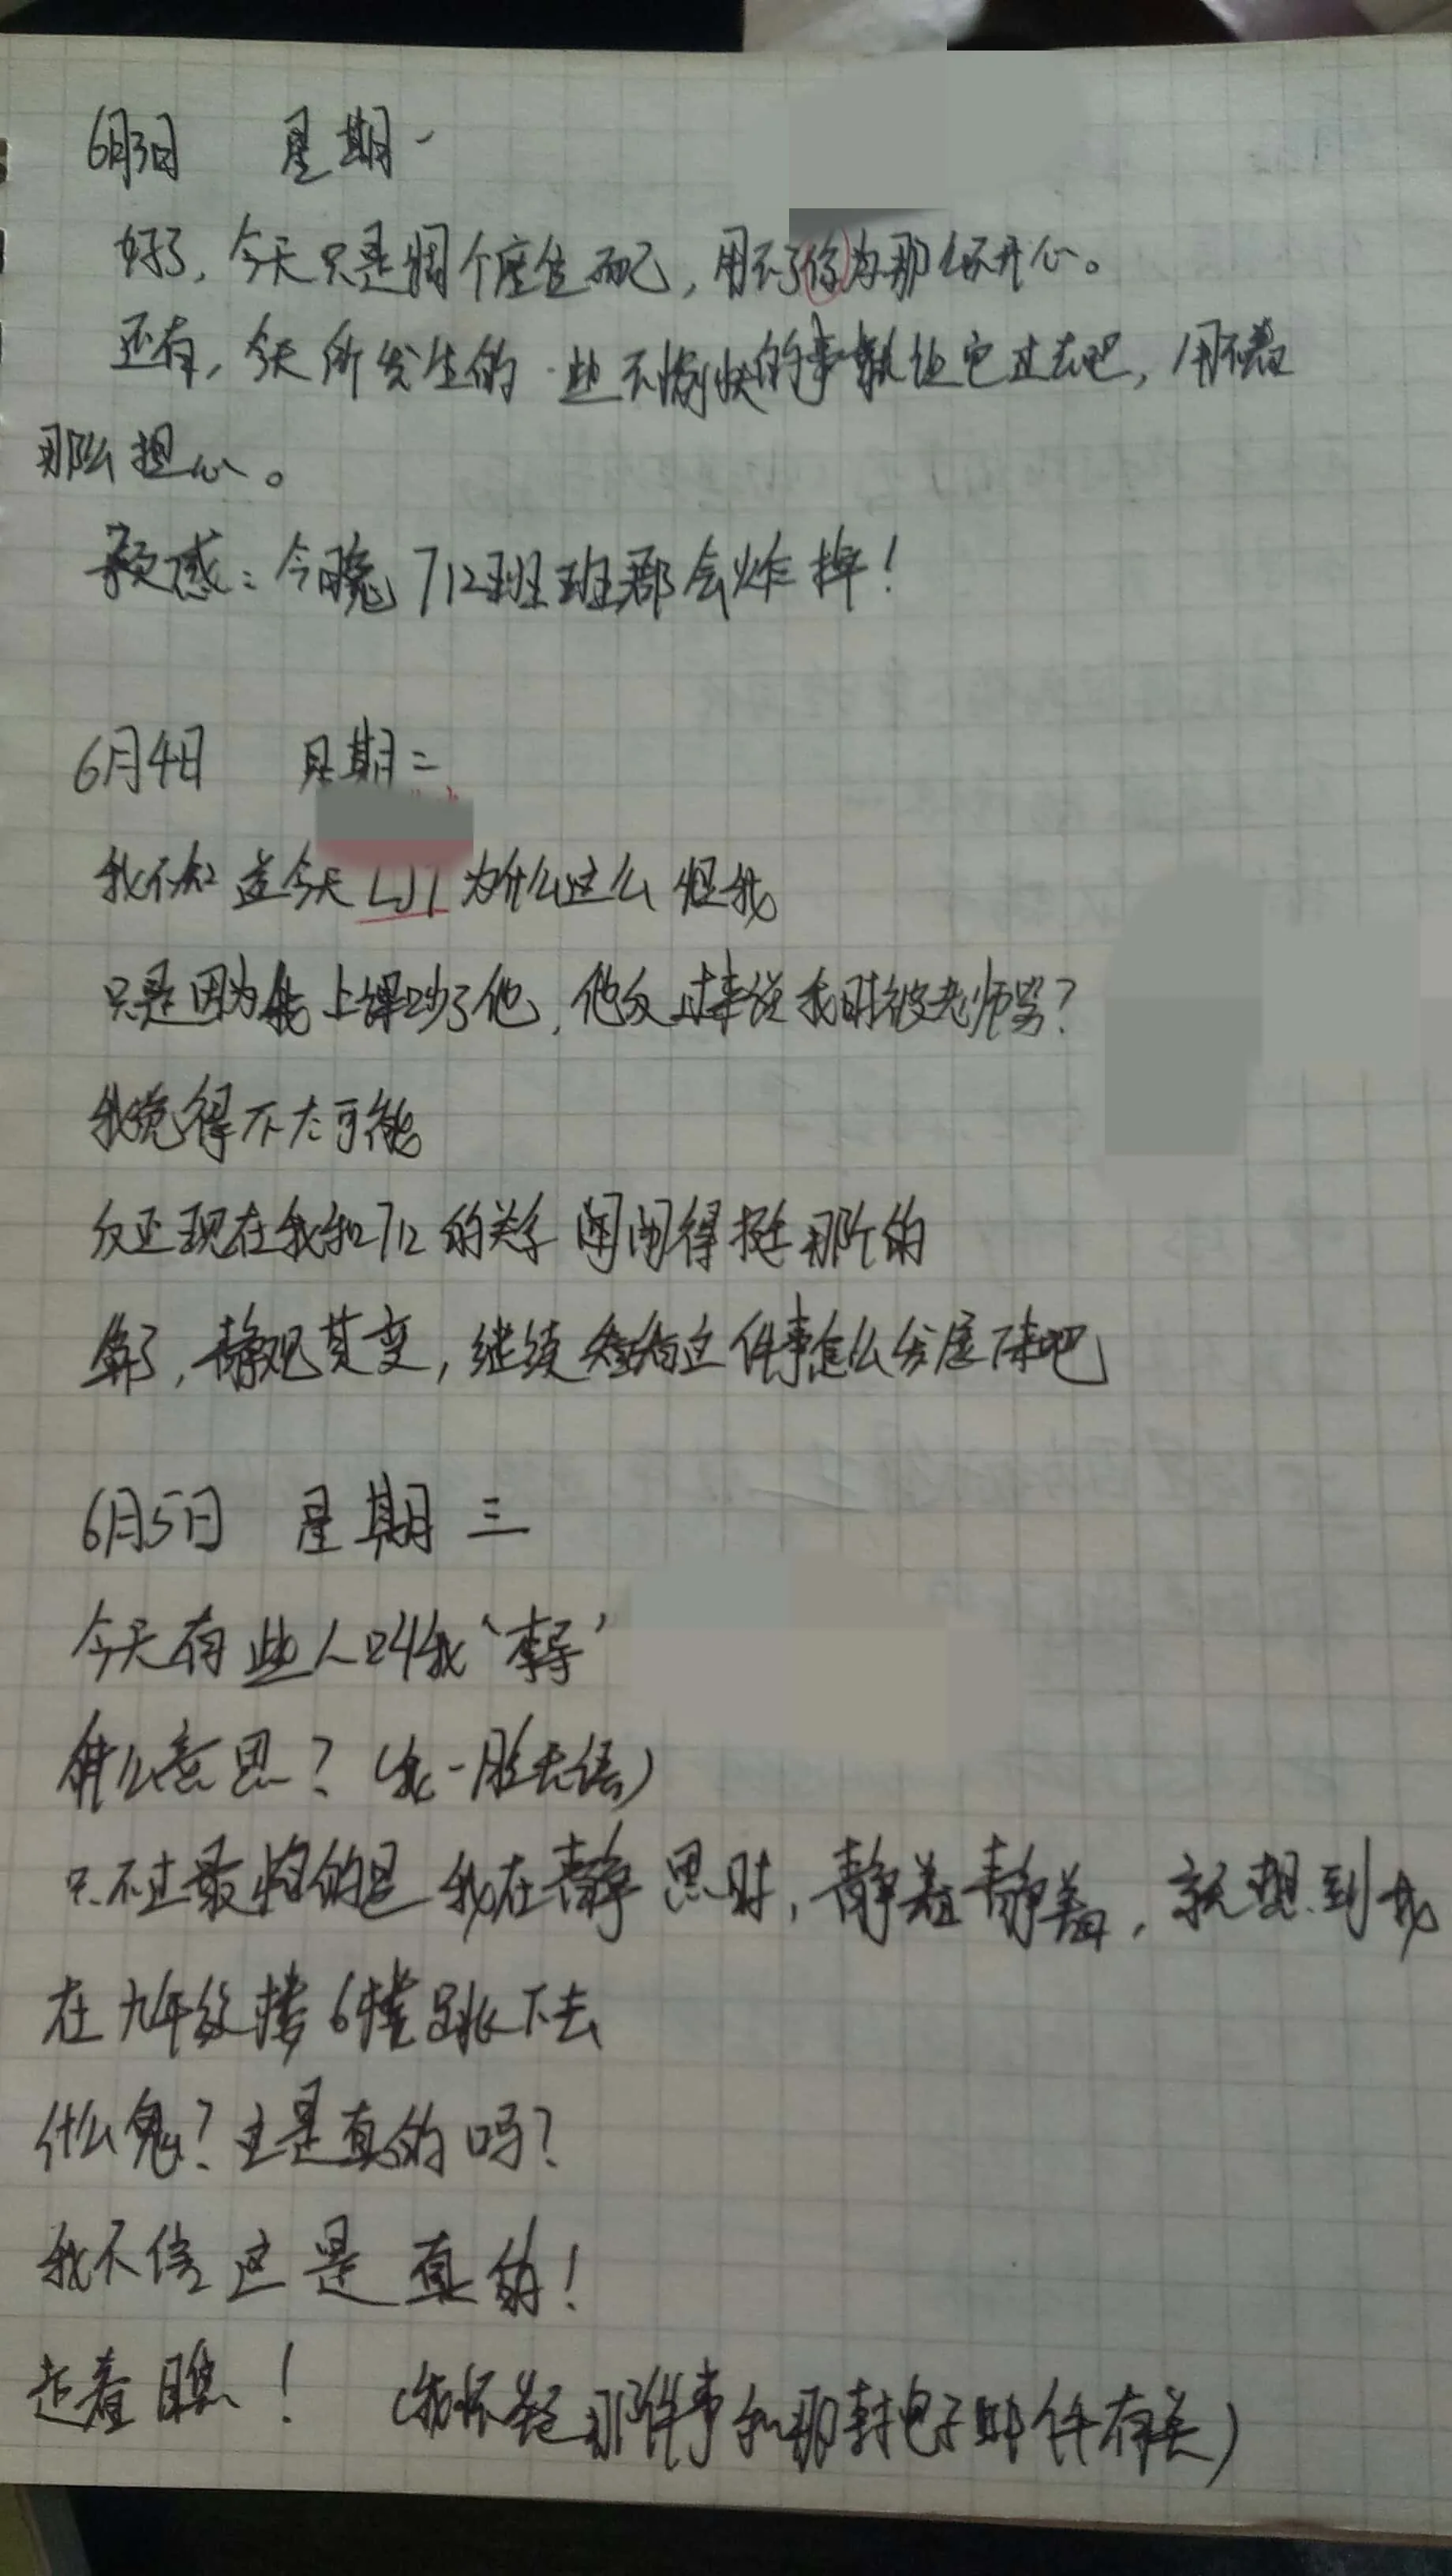 6月3日 星期一
好了，今天只是调个座位而已，用不了你为那么不开心。
还有，今天所发生的一些不愉快的事就让它过去吧，用不着
那么担心。
预感：今晚712班班群会炸掉！
6月4日 星期二
我不知道今天LJY为什么这么怪我
只是因为我上课吵了他，他反过来说我时被老师骂？
我觉得不太可能
反正现在我和712的关系闹得挺那个的
算了，静观其变，继续看这件事怎么发展下来吧
6月5日 星期三
今天有些人叫我‘李导’
什么意思？（我一脸无语）
只不过最怕的是我在静思时，静着静着，就想到我
在九年级楼6楼跳下去
什么鬼？这是真的吗？
我不信这是真的！
走着瞧！ （我怀疑那件事和那封电子邮件有关）